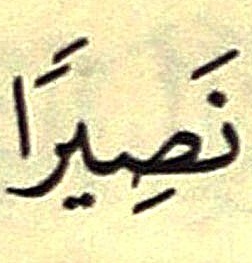 نَصِيرًا